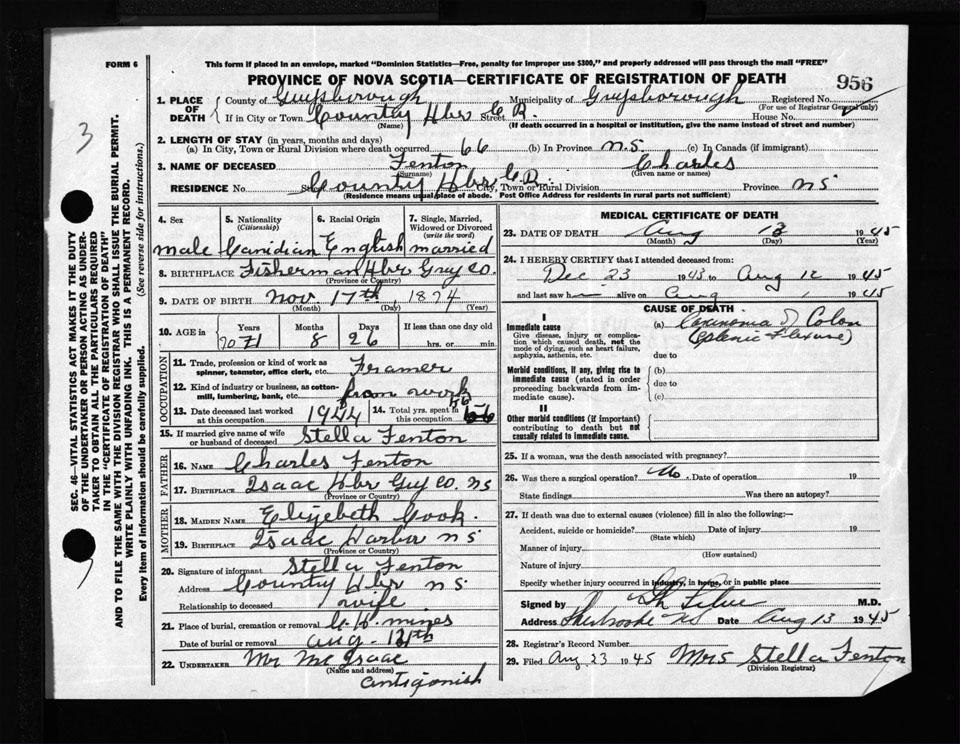 FORM 6
This form if placed in an envelope, marked "Dominion Statistics—Free, penalty for improper use $300," and properly addressed will pass through the mail "FREE"
PROVINCE OF NOVA SCOTIA—CERTIFICATE OF REGISTRATION OF DEATH
956
3
1. PLACE OF DEATH County of Guysborough Municipality of Guysborough Registered No.
(For use of Registrar General only)
If in City or Town Country Hbr C.R. Street House No.
(Name) (If death occurred in a hospital or institution, give the name instead of street and number)
2. LENGTH OF STAY (in years, months and days)
(a) In City, Town or Rural Division where death occurred 66 (b) In Province N.S. (c) In Canada (if immigrant)
3. NAME OF DECEASED Fenton Charles
(Surname) (Given name or names)
RESIDENCE No. Country Hbr C.R. City, Town or Rural Division Province N S
(Residence means usual place of abode. Post Office Address for residents in rural parts not sufficient)
4. Sex 5. Nationality (Citizenship) 6. Racial Origin 7. Single, Married, Widowed or Divorced (write the word)
male Canidian English married
8. BIRTHPLACE Fisherman Hbr Guy Co.
(Province or Country)
9. DATE OF BIRTH Nov. 17th, 1874
(Month) (Day) (Year)
10. AGE Years Months Days If less than one day old
70 71 8 26 hrs. or min.
OCCUPATION
11. Trade, profession or kind of work as spinner, teamster, office clerk, etc. Framer
12. Kind of industry or business, as cotton-mill, lumbering, bank, etc. from work
13. Date deceased last worked at this occupation 1944 14. Total yrs. spent in this occupation 56
15. If married give name of wife or husband of deceased Stella Fenton
FATHER
16. NAME Charles Fenton
17. BIRTHPLACE Isaac Hbr Guy Co. NS
(Province or Country)
MOTHER
18. MAIDEN NAME Elizebeth Cook.
19. BIRTHPLACE Isaac Harbor N S
(Province or Country)
20. Signature of informant Stella Fenton
Address Country Hbr N S.
Relationship to deceased wife
21. Place of burial, cremation or removal C. H. mines
Date of burial or removal aug.
22. UNDERTAKER Mr Mc Isaac
(Name and Address)
antigonish
MEDICAL CERTIFICATE OF DEATH
23. DATE OF DEATH Aug 13 1945
(Month) (Day) (Year)
24. I HEREBY CERTIFY that I attended deceased from:
Dec 23 1943 to Aug 12 1945
and last saw h alive on Aug 1945
CAUSE OF DEATH
I
Immediate cause (a) Carcinoma of Colon
Give disease, injury or complication which caused death, not the mode of dying, such as heart failure, asphyxia, asthenia, etc. (Splenic Flexure)
due to
Morbid conditions, if any, giving rise to immediate cause (stated in order proceeding backwards from immediate cause). (b)
due to
(c)
II
Other morbid conditions (if important) contributing to death but not causally related to immediate cause.
25. If a woman, was the death associated with pregnancy?
26. Was there a surgical operation? No Date of operation 19
State findings Was there an autopsy?
27. If death was due to external causes (violence) fill in also the following:—
Accident, suicide or homicide? Date of injury 19
(State which)
Manner of injury
(How sustained)
Nature of injury
Specify whether injury occurred in industry, in home, or in public place
Signed by M.D.
Address Sherbrooke NS Date Aug 13 1945
28. Registrar's Record Number
29. Filed Aug 23 1945 Mrs Stella Fenton
(Division Registrar)
SEC. 46—VITAL STATISTICS ACT MAKES IT THE DUTY
OF THE UNDERTAKER OR PERSON ACTING AS UNDERTAKER TO OBTAIN ALL THE PARTICULARS REQUIRED
IN THE "CERTIFICATE OF REGISTRATION OF DEATH"
AND TO FILE THE SAME WITH THE DIVISION REGISTRAR WHO SHALL ISSUE THE BURIAL PERMIT.
WRITE PLAINLY WITH UNFADING INK. THIS IS A PERMANENT RECORD.
Every item of information should be carefully supplied. (See reverse side for instructions.)